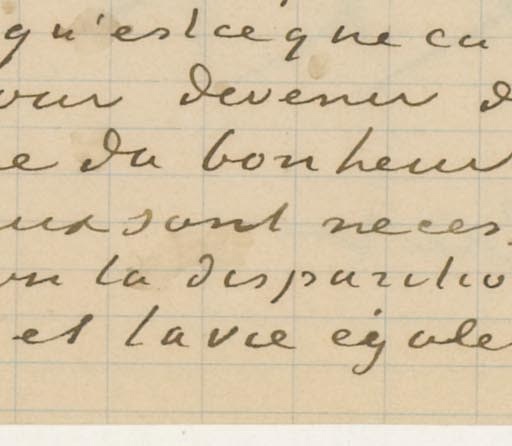 qu'est ce que ca
our devenir d
e du bonheur
ux sont neces
on la disparitio
et la vie égale